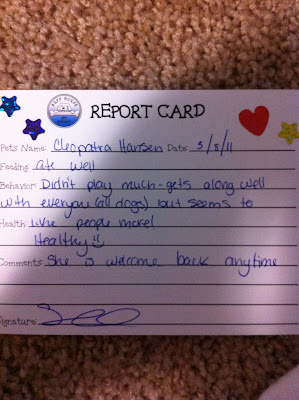 REPORT CARD
Pets Name: Cleopatra Hansen Date: 3/8/11
Feeding: ate well
Behavior: Didn't play much - gets along well
with everyone (all dogs) but seems to
Health: like people more!
Healthy
Comments: She is welcome back anytime
Signature: